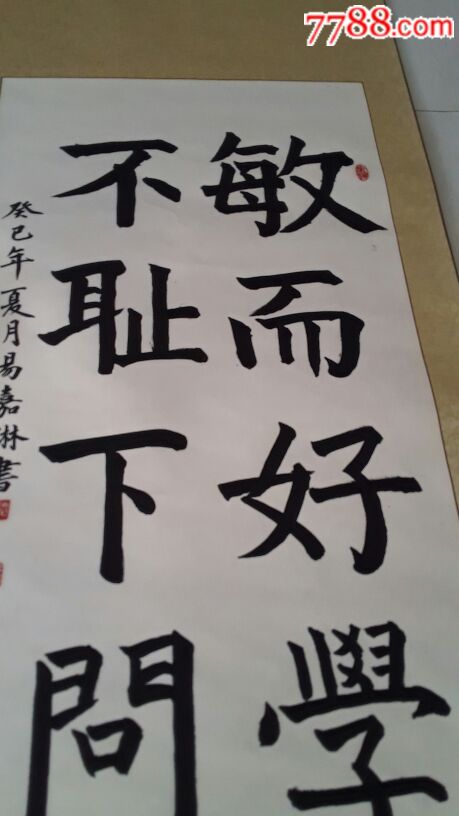 7788.com
敏而好學
不耻下問
癸巳年夏月易嘉琳書